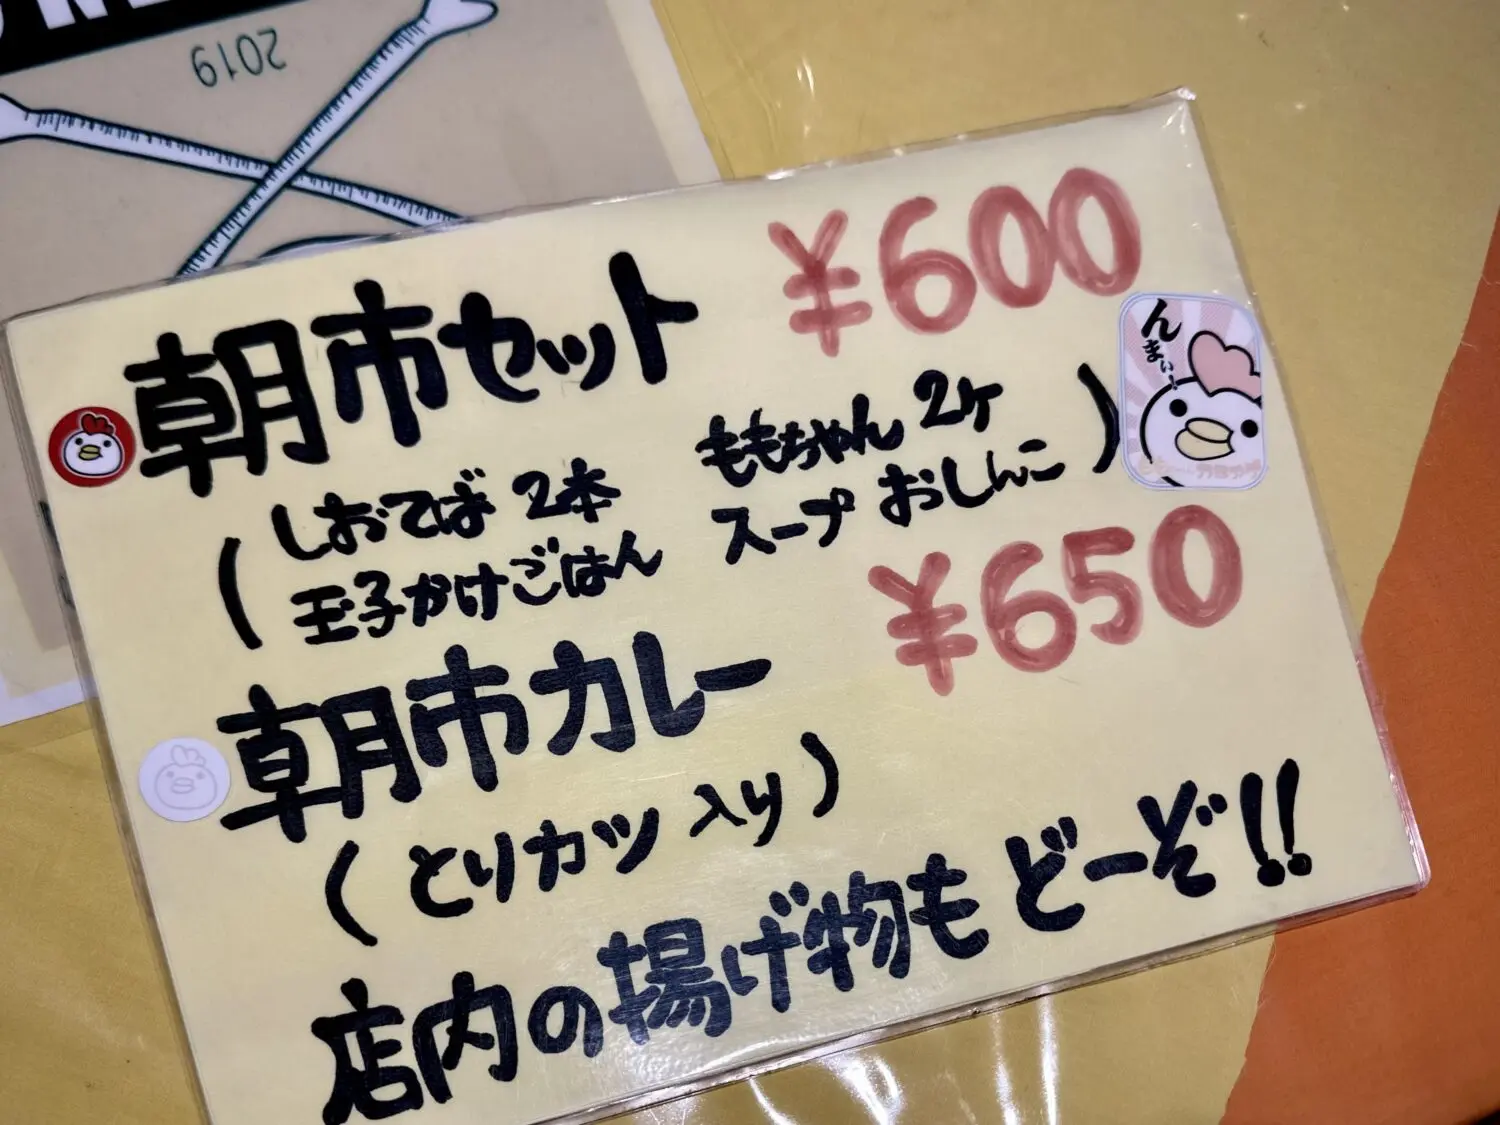 2019
朝市セット ¥600
(しおてば 2本 ももちゃん 2ヶ
玉子かけごはん スープ おしんこ)
んまぃ!
朝市カレー ¥650
(とりカツ入り)
店内の揚げ物もどーぞ!!